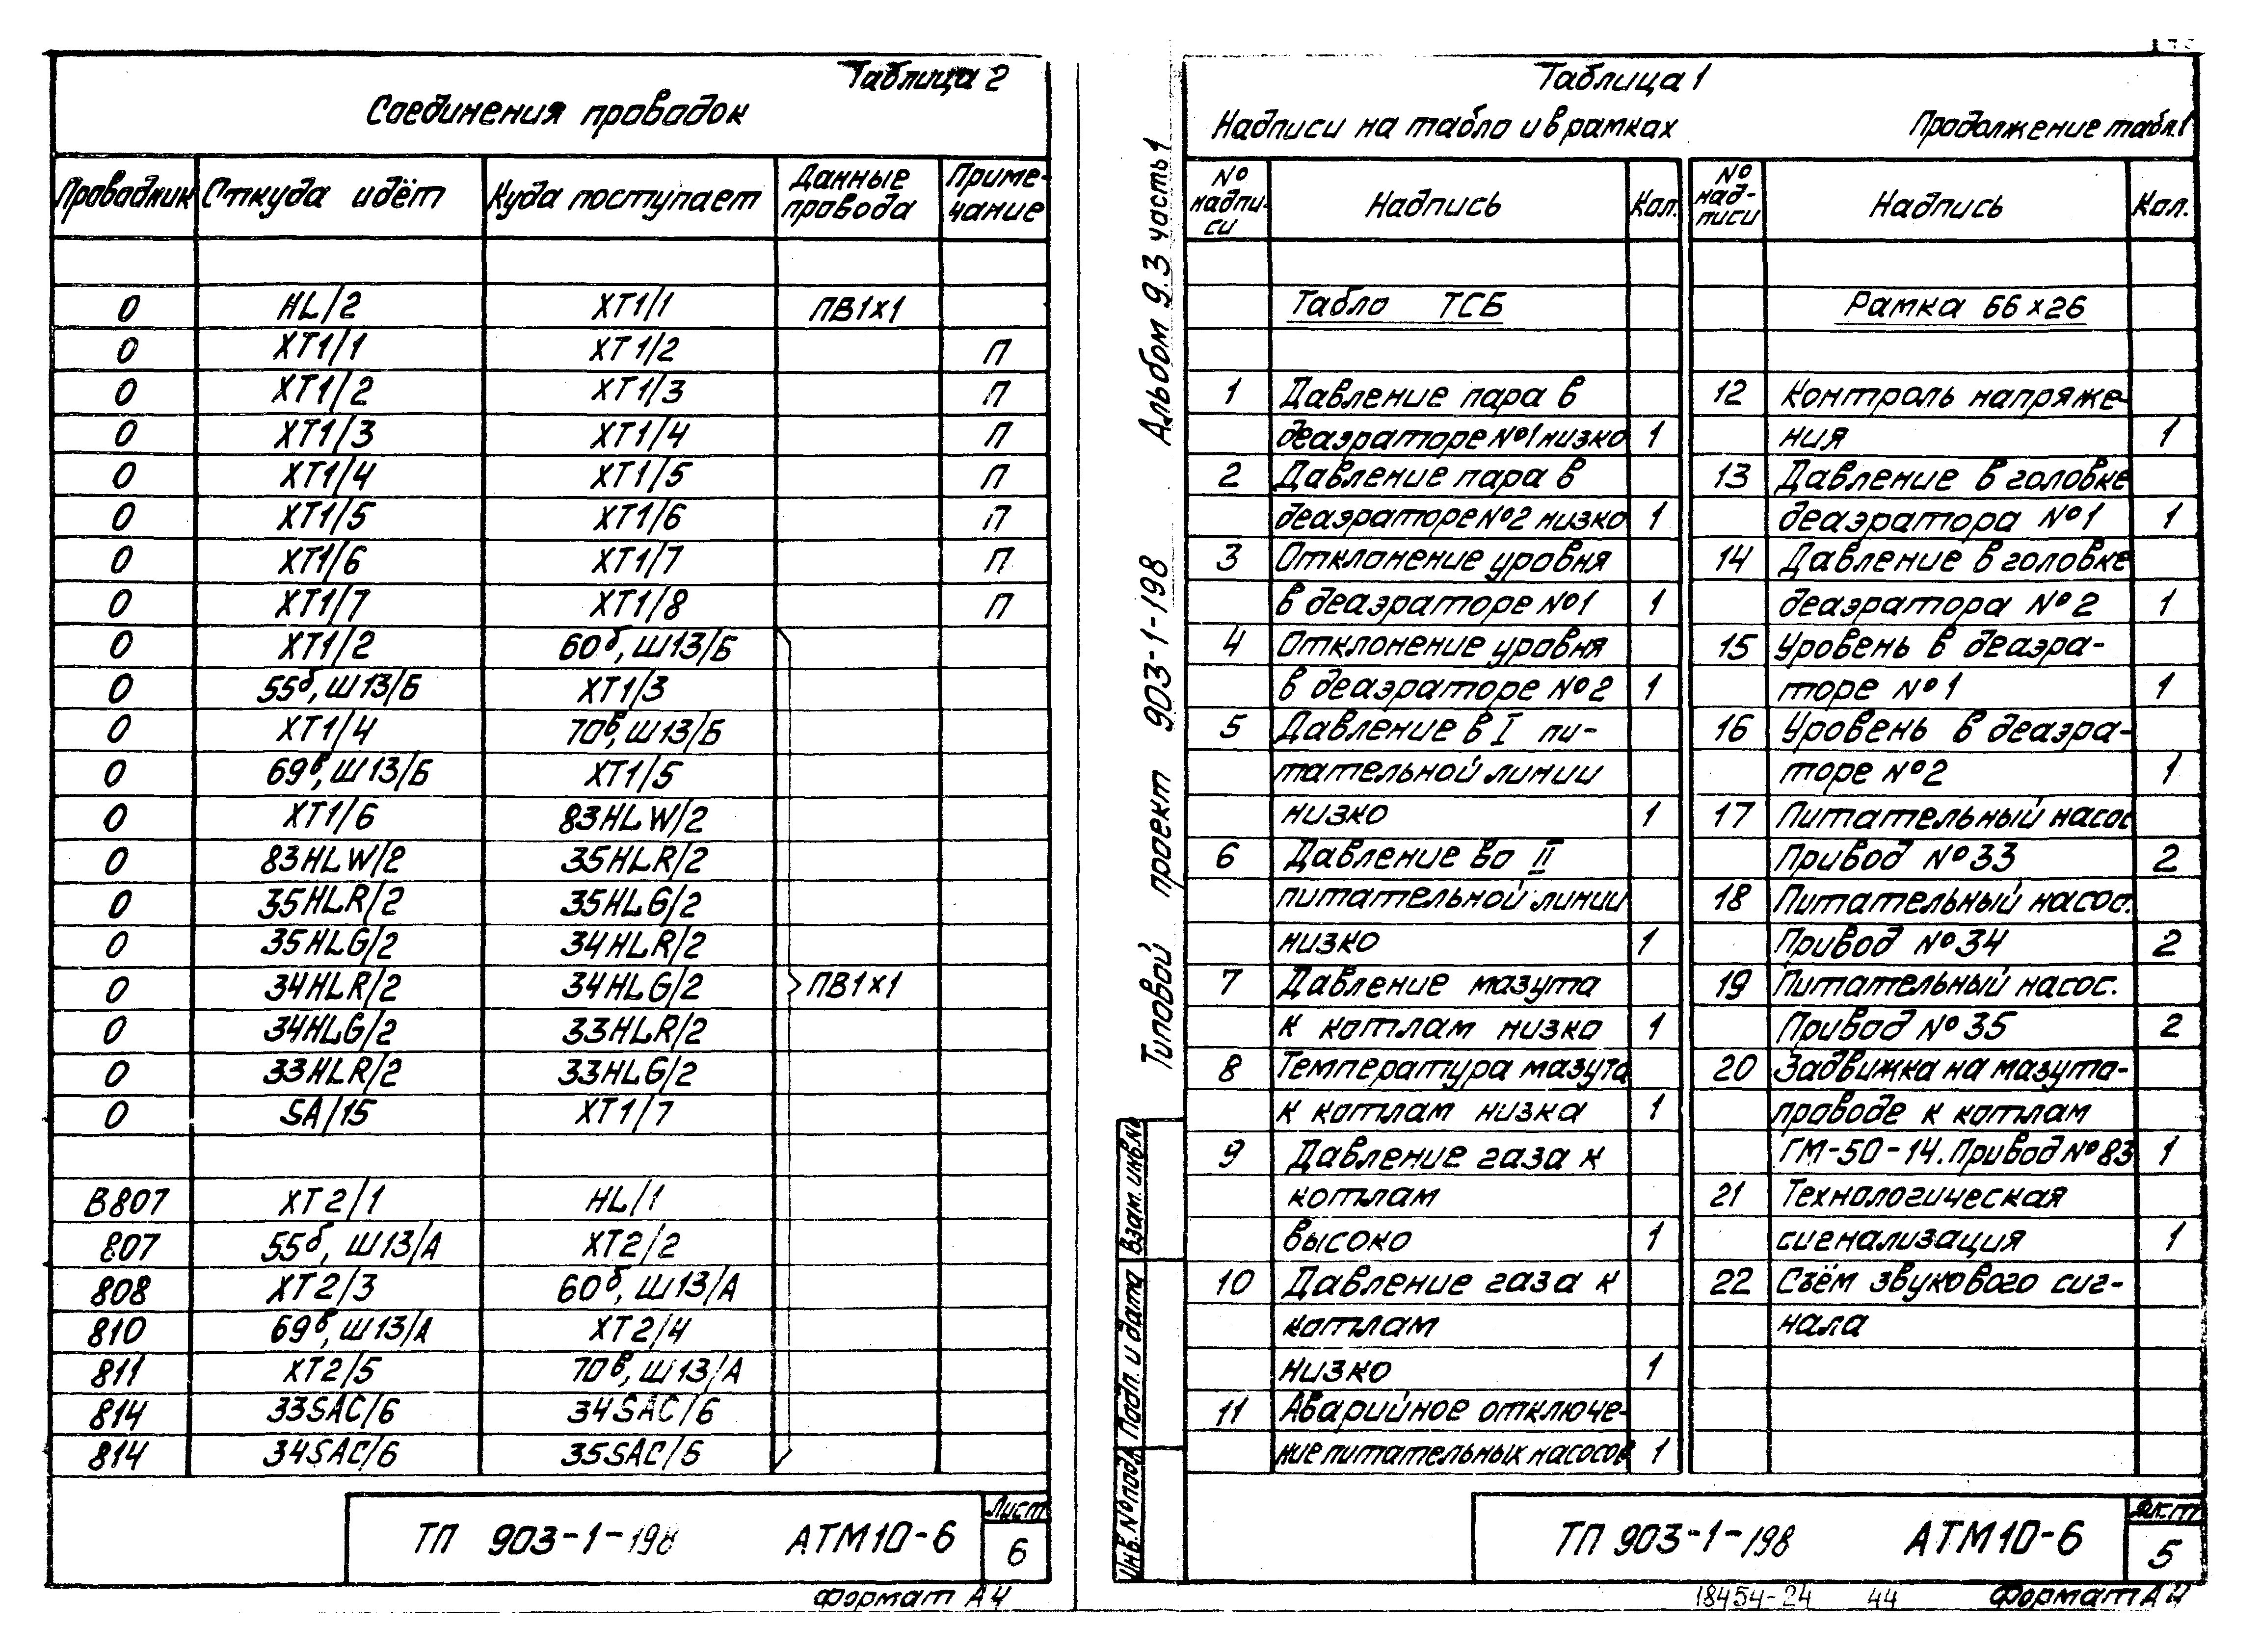 Таблица 2
Соединения проводок
Проводник Откуда идёт Куда поступает Данные провода Примечание
0 HL/2 XT1/1 ПВ1х1
0 XT1/1 XT1/2 П
0 XT1/2 XT1/3 П
0 XT1/3 XT1/4 П
0 XT1/4 XT1/5 П
0 XT1/5 XT1/6 П
0 XT1/6 XT1/7 П
0 XT1/7 XT1/8 П
0 XT1/2 60б, Ш13/Б
0 55б, Ш13/Б XT1/3
0 XT1/4 70в, Ш13/Б
0 69в, Ш13/Б XT1/5
0 XT1/6 83HLW/2
0 83HLW/2 35HLR/2
0 35HLR/2 35HLG/2
0 35HLG/2 34HLR/2
0 34HLR/2 34HLG/2 ПВ1х1
0 34HLG/2 33HLR/2
0 33HLR/2 33HLG/2
0 SA/15 XT1/7
В807 XT2/1 HL/1
807 55б, Ш13/А XT2/2
808 XT2/3 60б, Ш13/А
810 69в, Ш13/А XT2/4
811 XT2/5 70в, Ш13/А
814 33SAC/6 34SAC/6
814 34SAC/6 35SAC/6
ТП 903-1-198 АТМ10-6
Лист
6
Формат А4
Типовой проект 903-1-198 Альбом 9.3 часть 1
Взам. инв.№
Подп. и дата
Инв.№ подл.
Таблица 1
Надписи на табло и в рамках
Продолжение табл.1
№ надпи-
си
Надпись
Кол.
Табло ТСБ
1 Давление пара в
деаэраторе №1 низко 1
2 Давление пара в
деаэраторе №2 низко 1
3 Отклонение уровня
в деаэраторе №1 1
4 Отклонение уровня
в деаэраторе №2 1
5 Давление в I пи-
тательной линии
низко 1
6 Давление во II
питательной линии
низко 1
7 Давление мазута
к котлам низко 1
8 Температура мазута
к котлам низка 1
9 Давление газа к
котлам
высоко 1
10 Давление газа к
котлам
низко 1
11 Аварийное отключе-
ние питательных насосов 1
№
над-
писи
Надпись
Кол.
Рамка 66х26
12 Контроль напряже-
ния 1
13 Давление в головке
деаэратора №1 1
14 Давление в головке
деаэратора №2 1
15 Уровень в деаэра-
торе №1 1
16 Уровень в деаэра-
торе №2 1
17 Питательный насос
Привод №33 2
18 Питательный насос.
Привод №34 2
19 Питательный насос.
Привод №35 2
20 Задвижка на мазуто-
проводе к котлам
ГМ-50-14. Привод №83 1
21 Технологическая
сигнализация 1
22 Съём звукового сиг-
нала
ТП 903-1-198 АТМ10-6
Лист
5
18454-24 44 Формат А4